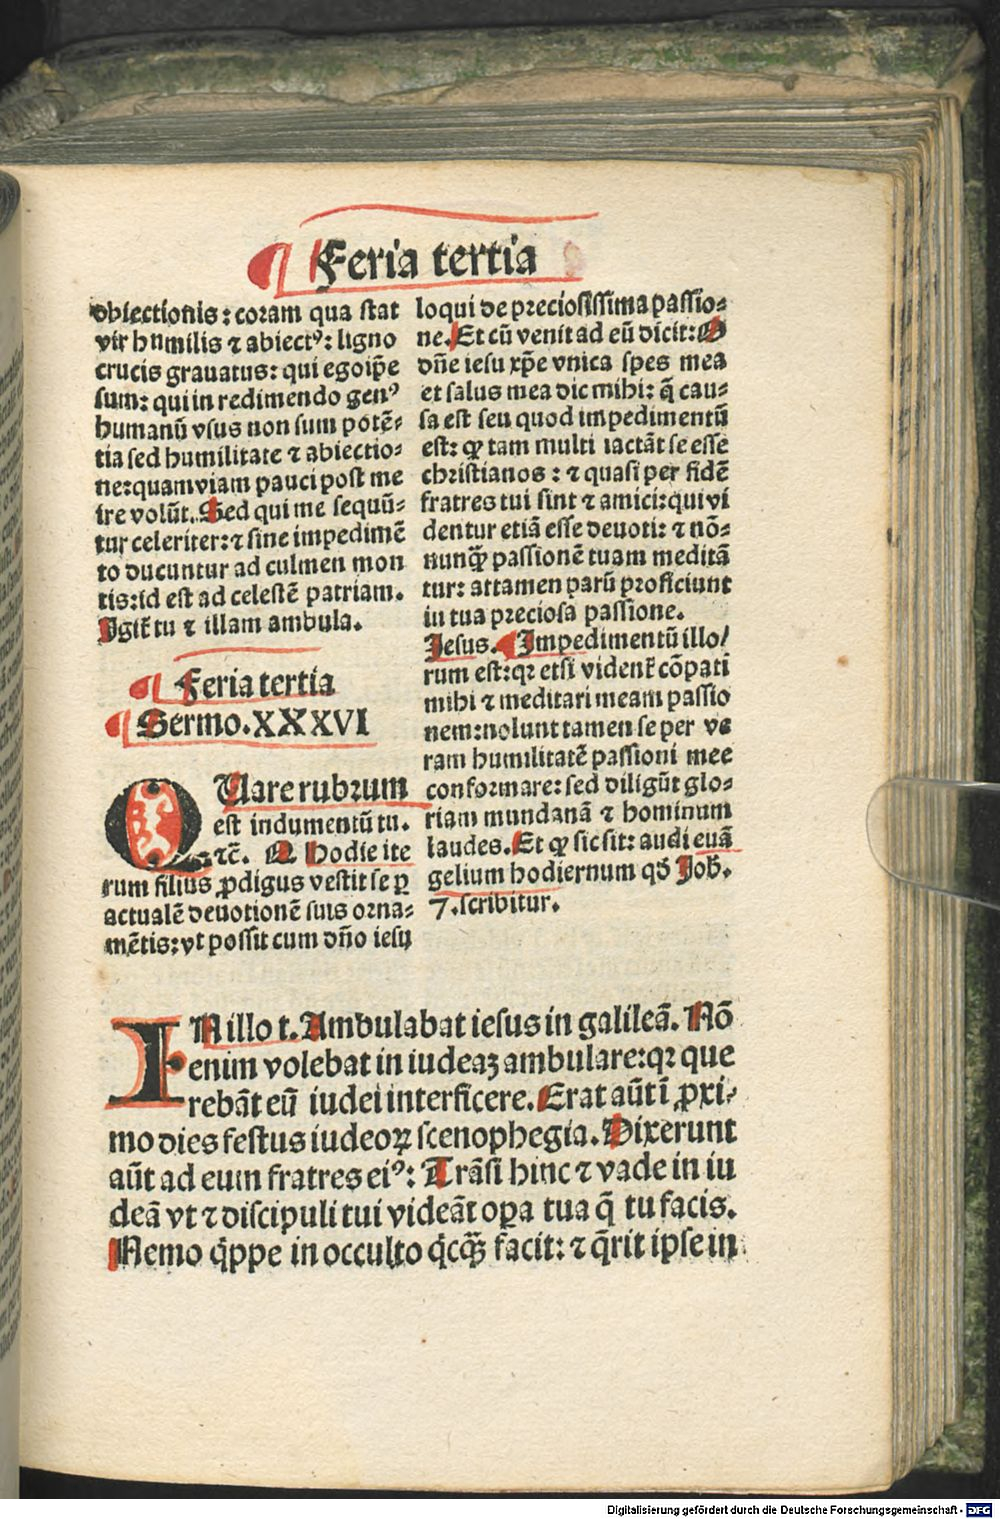 ¶ Feria tertia
obiectionis: coram qua stat
vir humilis ⁊ abiectꝰ: ligno
crucis grauatus: qui ego ip̄e
sum: qui in redimendo genꝰ
humanū vsus non sum potē⸗
tia sed humilitate ⁊ abiectio⸗
ne: quam viam pauci post me
ire volūt. Sed qui me sequū⸗
tur celeriter: ⁊ sine impedimē
to ducuntur ad culmen mon
tis: id est ad celestē patriam.
Igit̄ tu ⁊ illam ambula.
¶ Feria tertia
¶ Sermo. XXXVI
QUare rubrum
est indumentū tu.
⁊c̄. N Hodie ite
rum filius ꝓdigus vestit se ꝑ
actualē deuotionē suis orna⸗
mētis: vt possit cum dn̄o iesu
loqui de preciosissima passio⸗
ne. Et cū venit ad eū dicit: O
dn̄e iesu xp̄e vnica spes mea
et salus mea dic mihi: q̄ cau⸗
sa est seu quod impedimentū
est: ꝙ tam multi iactāt se esse
christianos: ⁊ quasi per fidē
fratres tui sint ⁊ amici: qui vi
dentur etiā esse deuoti: ⁊ nō⸗
nunꝙ̄ passionē tuam meditā
tur: attamen parū proficiunt
in tua preciosa passione.
Jesus. ¶ Impedimentū illo/
rum est: qꝛ etsi vident̄ cōpati
mihi ⁊ meditari meam passio
nem: nolunt tamen se per ve
ram humilitatē passioni mee
conformare: sed diligūt glo⸗
riam mundanā ⁊ hominum
laudes. Et ꝙ sic sit: audi euā
gelium hodiernum qd̄ Joh̄.
7. scribitur.
IN illo t. Ambulabat iesus in galileā. Nō
enim volebat in iudeaꝫ ambulare: qꝛ que
rebāt eū iudei interficere. Erat aūt ī ꝓxi⸗
mo dies festus iudeoꝝ scenophegia. Dixerunt
aūt ad eum fratres eiꝰ: Trāsi hinc ⁊ vade in iu
deā vt ⁊ discipuli tui videāt oꝑa tua q̄ tu facis.
Nemo q̄ppe in occulto q̄cꝙ̄ facit: ⁊ q̄rit ipse in
Digitalisierung gefördert durch die Deutsche Forschungsgemeinschaft - DFG